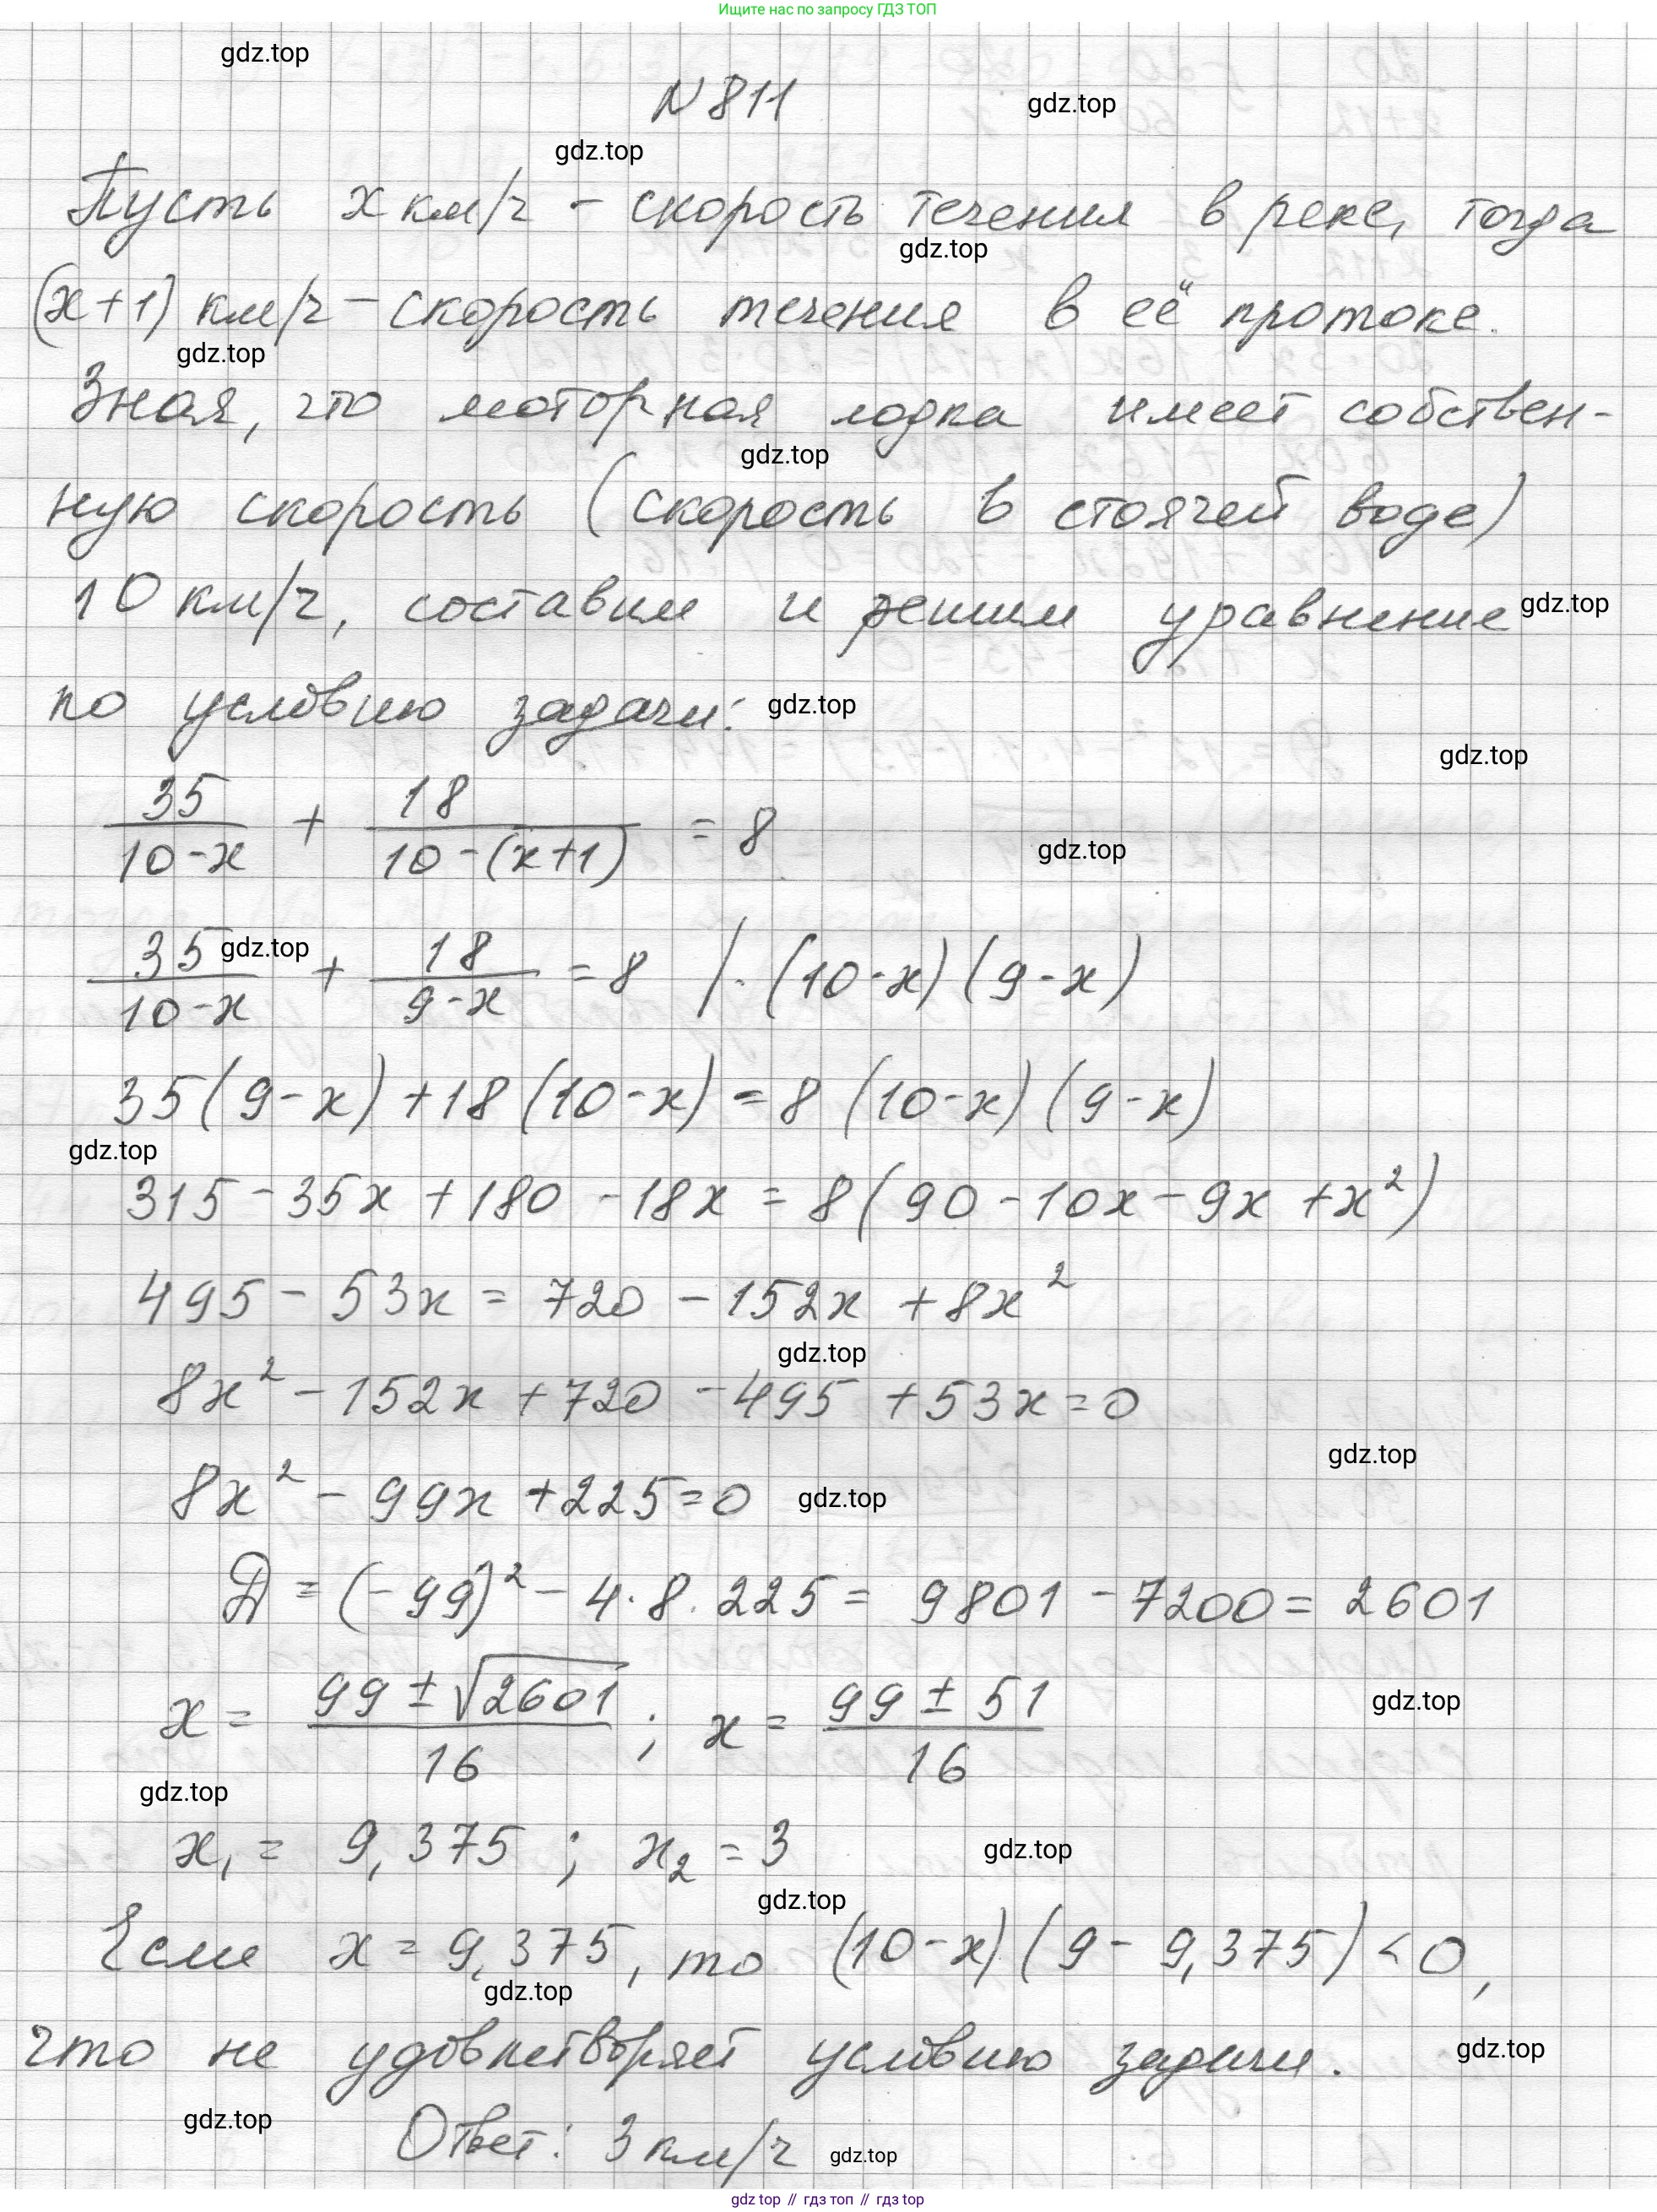 Ищите нас по запросу ГДЗ ТОП
gdz.top
N 811
gdz.top
gdz.top
Пусть x км/ч - скорость течения в реке, тогда
gdz.top
(x+1) км/ч - скорость течения в её протоке.
gdz.top
Зная, что моторная лодка имеет собствен-
gdz.top
ную скорость (скорость в стоячей воде)
10 км/ч, составим и решим уравнение
gdz.top
по условию задачи:
gdz.top
gdz.top
35/(10-x) + 18/(10-(x+1)) = 8
gdz.top
35/(10-x) + 18/(9-x) = 8 /·(10-x)(9-x)
gdz.top
35(9-x)+18(10-x)=8(10-x)(9-x)
gdz.top
315-35x+180-18x=8(90-10x-9x+x²)
495-53x=720-152x+8x²
gdz.top
8x²-152x+720-495+53x=0
gdz.top
8x²-99x+225=0
gdz.top
Д=(-99)²-4·8·225=9801-7200=2601
x = (99±√2601)/16; x = (99±51)/16
gdz.top
gdz.top
x₁ = 9,375; x₂ = 3
gdz.top
gdz.top
Если x=9,375, то (10-x)(9-9,375)<0,
gdz.top
что не удовлетворяет условию задачи.
gdz.top
gdz.top
Ответ: 3 км/ч
gdz.top
gdz top // гдз топ // гдз top